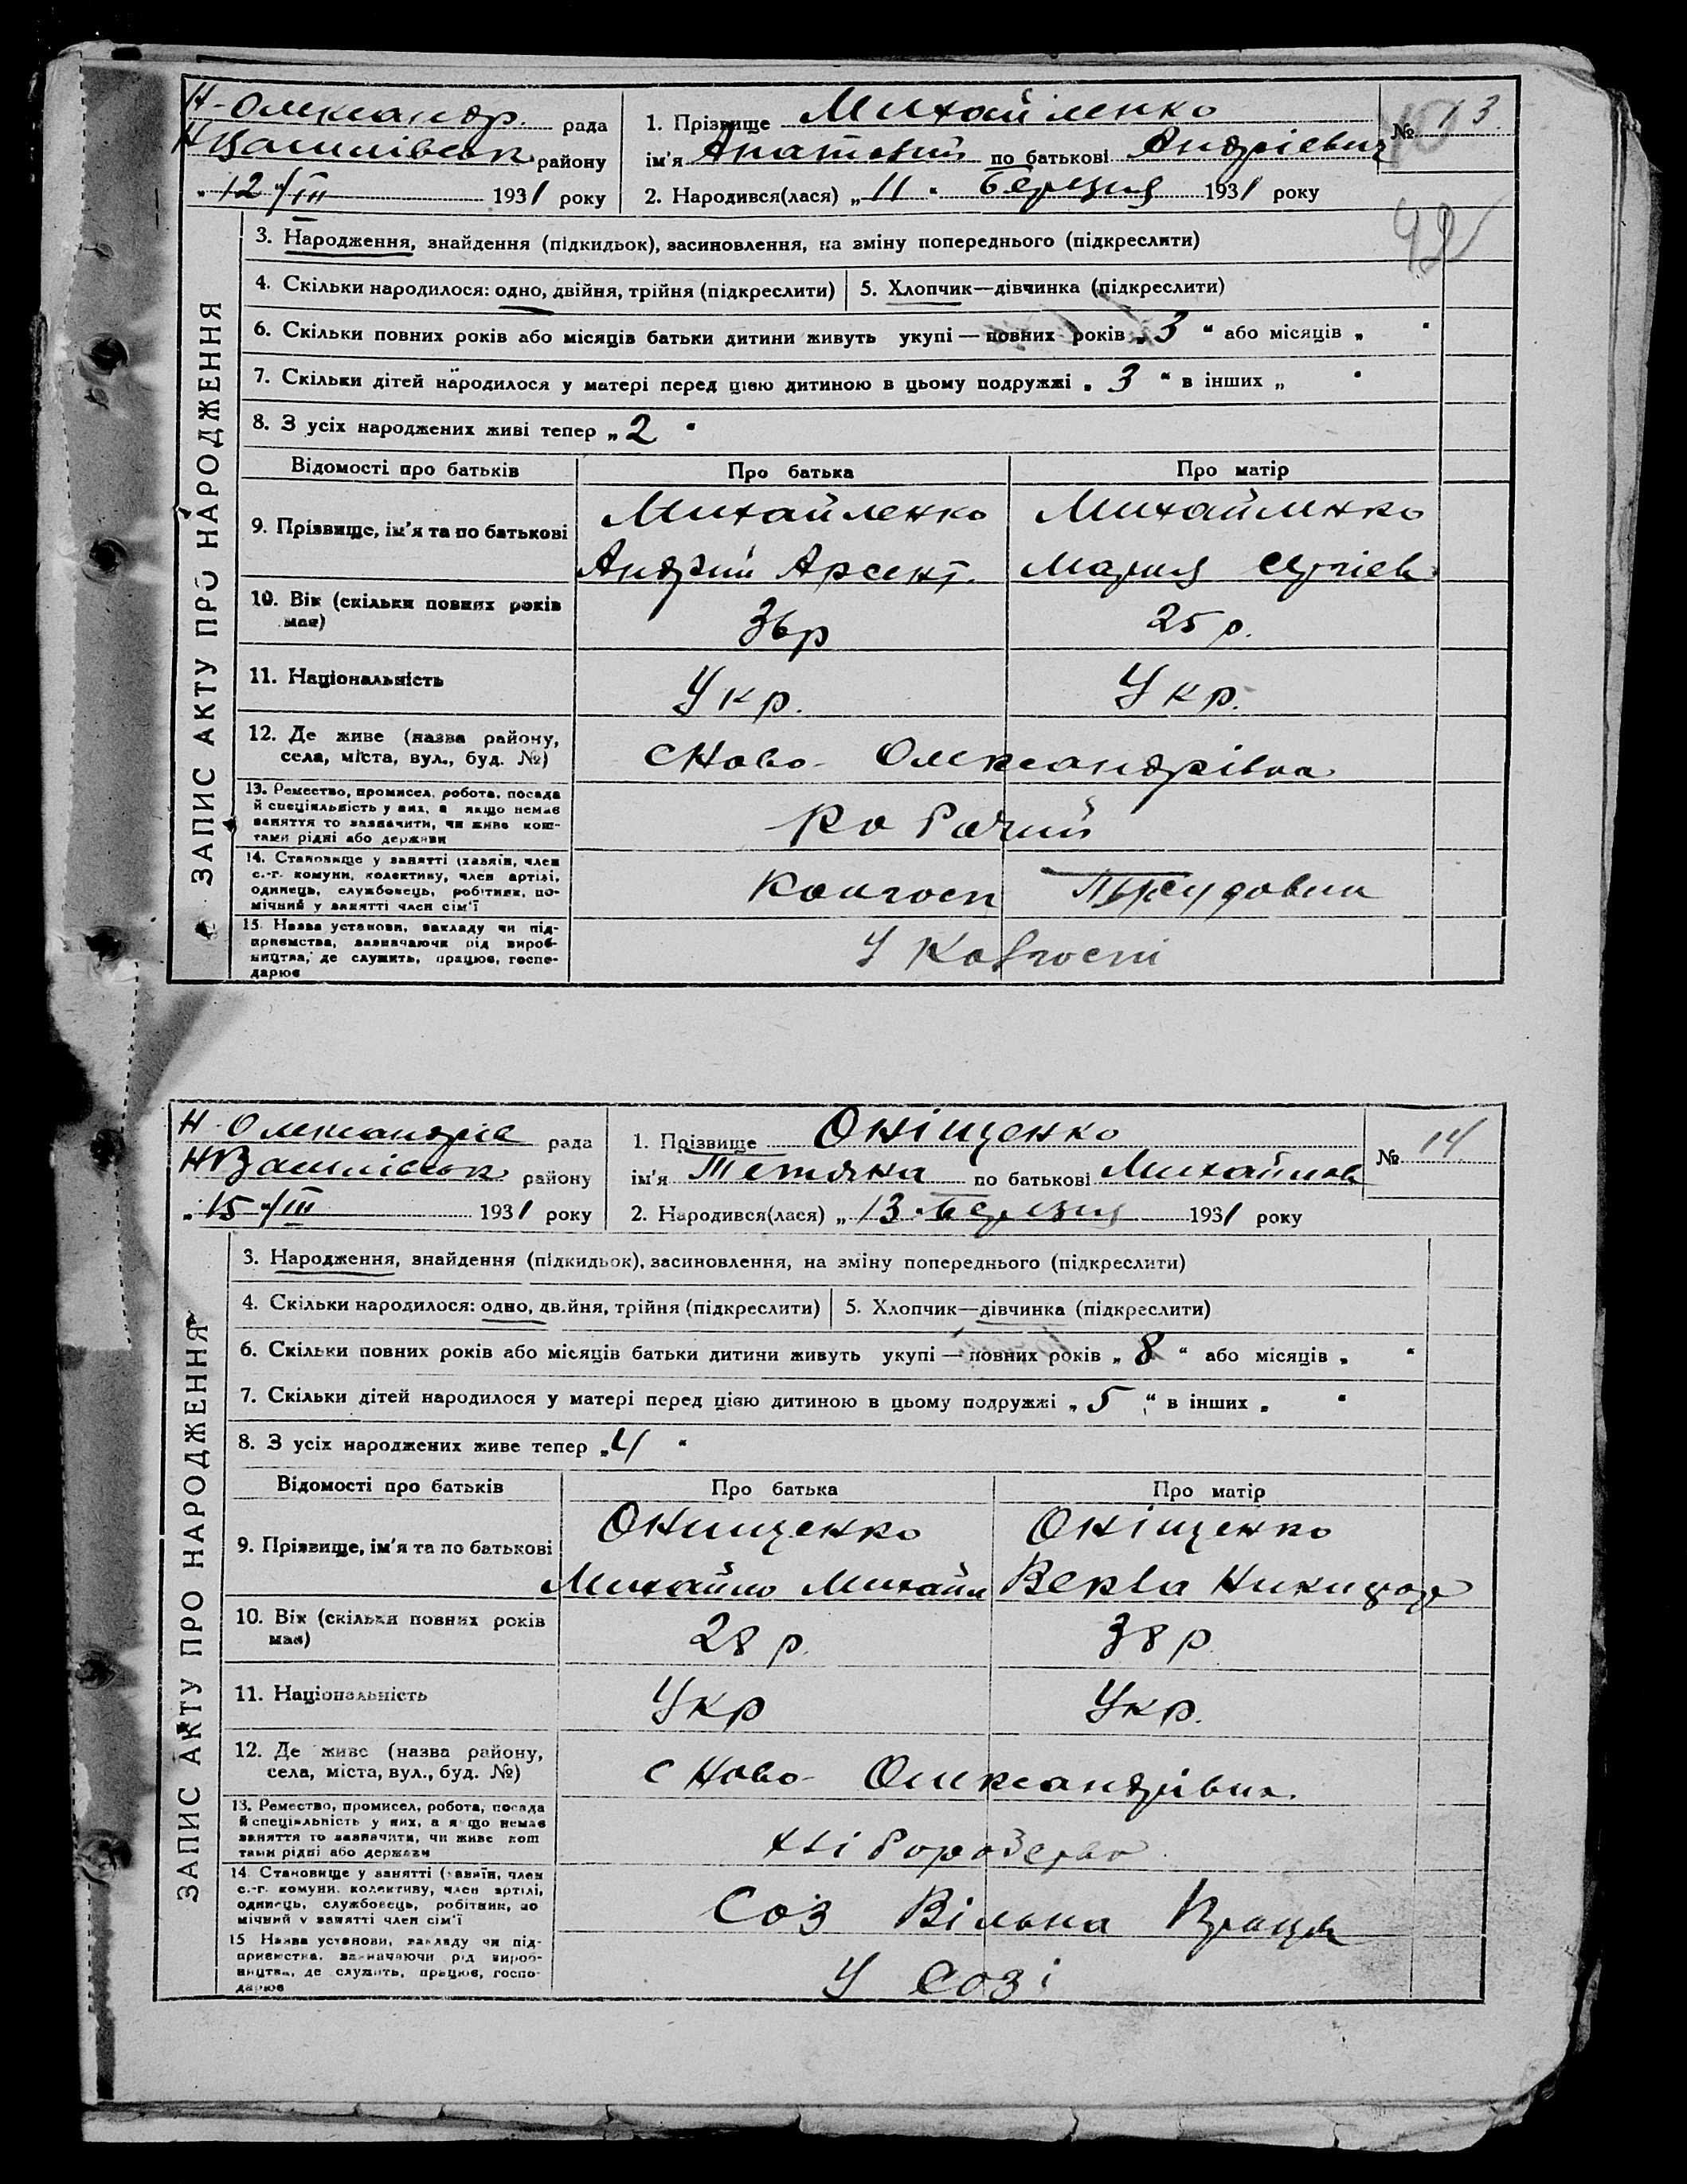 Н-Олександр. рада
НВасилівськ району
„12"/III 1931 року
1. Прізвище Михайленко
ім'я Анатолій по батькові Андрієвич
2. Народився(лася) „11" Березня 1931 року
№ 13
42
ЗАПИС АКТУ ПРО НАРОДЖЕННЯ
3. Народження, знайдення (підкидьок), засиновлення, на зміну попереднього (підкреслити)
4. Скільки народилося: одно, двійня, трійня (підкреслити) 5. Хлопчик—дівчинка (підкреслити)
6. Скільки повних років або місяців батьки дитини живуть укупі — повних років „3" або місяців „ "
7. Скільки дітей народилося у матері перед цією дитиною в цьому подружжі „3" в інших „ "
8. З усіх народжених живі тепер „2"
Відомості про батьків Про батька Про матір
9. Прізвище, ім'я та по батькові
Михайленко Михайленко
Андрій Арсент. Мария Сергіев.
10. Вік (скільки повних років має)
36р 25 р.
11. Національність
Укр. Укр.
12. Де живе (назва району, села, міста, вул., буд. №)
с Ново-Олександрівка
13. Ремество, промисел, робота, посада
й спеціяльність у них, а якщо немає
заняття то зазначити, чи живе кош-
тами рідні або держави
Робочий
14. Становище у занятті (хазяїн, член
с.-г. комуни, колективу, член артілі,
одинець, службовець, робітник, по-
мічний у занятті член сім'ї
Колгосп
15. Назва установи, закладу чи під-
приємства, зазначаючи рід вироб-
ництва, де служить, працює, госпо-
дарює
У Колгоспі
Н-Олександрів рада
НВасилівськ району
„15"/III 1931 року
1. Прізвище Оніщенко
ім'я Тетяна по батькові Михайлов
2. Народився(лася) „13" Березня 1931 року
№ 14
ЗАПИС АКТУ ПРО НАРОДЖЕННЯ
3. Народження, знайдення (підкидьок), засиновлення, на зміну попереднього (підкреслити)
4. Скільки народилося: одно, двійня, трійня (підкреслити) 5. Хлопчик—дівчинка (підкреслити)
6. Скільки повних років або місяців батьки дитини живуть укупі — повних років „8" або місяців „ "
7. Скільки дітей народилося у матері перед цією дитиною в цьому подружжі „5" в інших „ "
8. З усіх народжених живе тепер „4"
Відомості про батьків Про батька Про матір
9. Прізвище, ім'я та по батькові
Онищенко Оніщенко
Михайло Михайл
10. Вік (скільки повних років має)
28 р. 38 р.
11. Національність
Укр Укр.
12. Де живе (назва району, села, міста, вул., буд. №)
с Ново-Олександрівка
13. Ремество, промисел, робота, посада
й спеціяльність у них, а якщо немає
заняття то зазначити, чи живе кош
тами рідні або держави
Хлібороберво
14. Становище у занятті (хазяїн, член
с.-г. комуни. колективу, член артілі,
одинець, службовець, робітник, по
мічний у занятті член сім'ї
Соз Вільна Праця
15 Назва установи, закладу чи під-
приємства, зазначаючи рід вироб-
ництва, де служить, працює, госпо-
дарює
У Созі